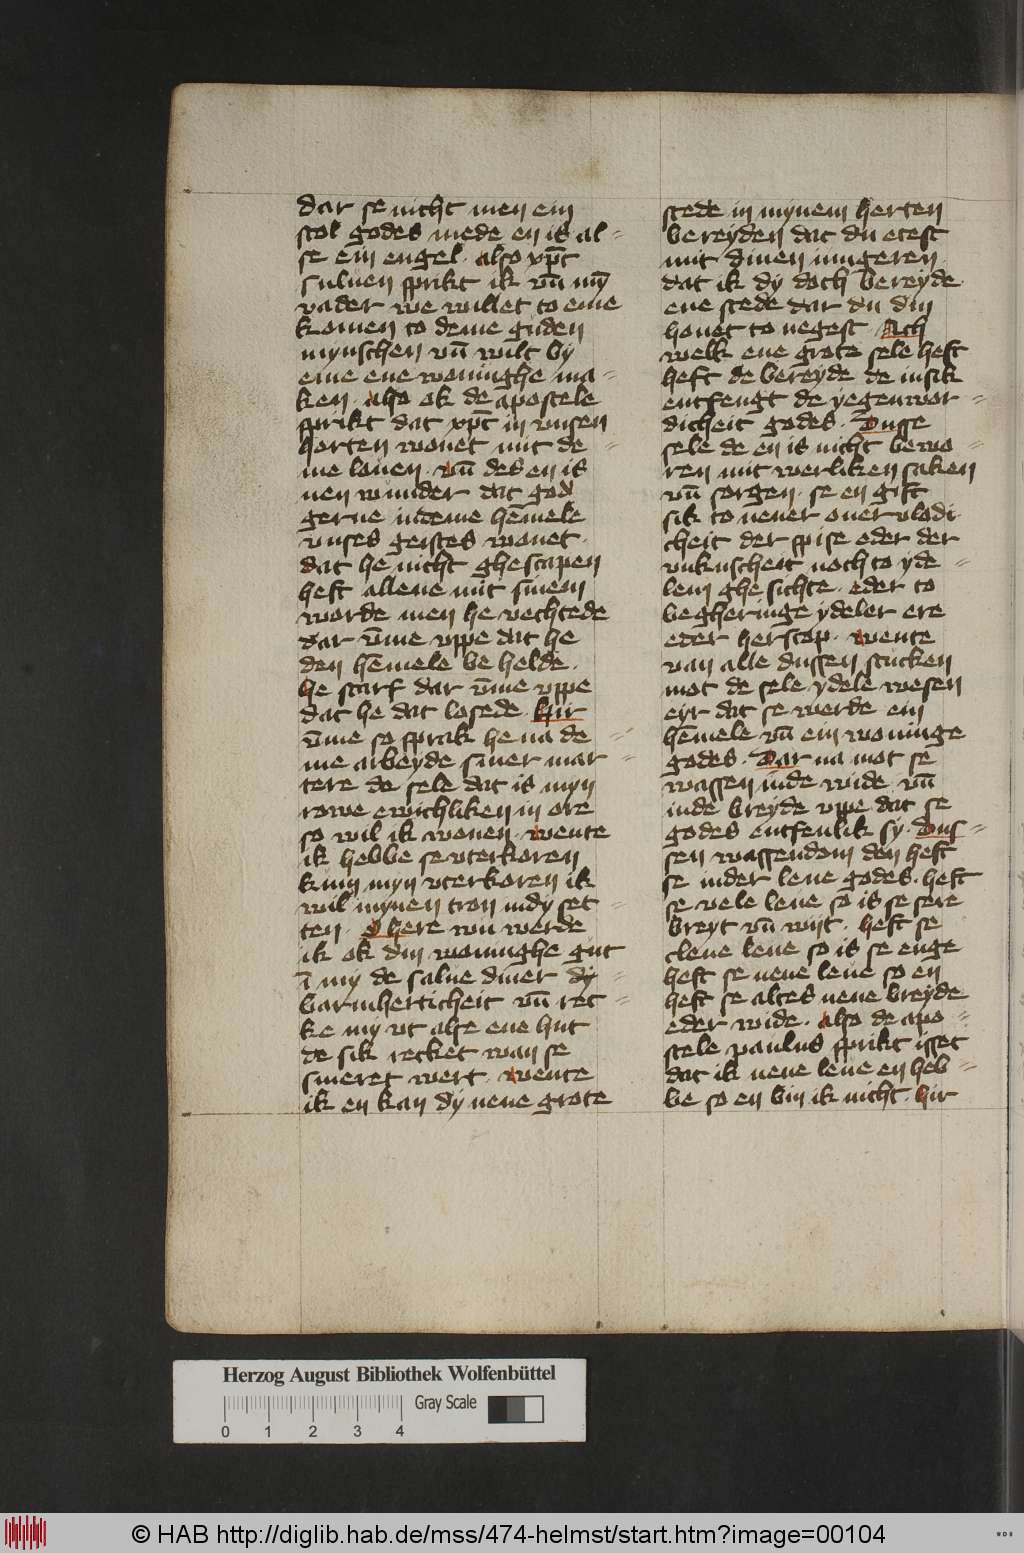 dar se nicht men ein
stol godes mede en is al=
se ein engel. also xp̄c
suluen sprikt ik vn̄ mȳ
vader we willet to eme
komen to deme guden
mynschen vn̄ wilt by
eme ene woninghe ma=
ken. also ok de apostele
sprikt dat xp̄c in vnsen
herten wonet mit de=
me louen. vn̄ des en is
nen wunder dat god
gerne indeme hēmele
vnses geistes wonet.
dat he nicht ghescapen
heft allene mit sinem
worde men he vechtede
dar v̄me vppe dat he
den hēmele be helde.
he starf dar v̄me vppe
dat he dat losede. hir
v̄me so sprak he na de=
me arbeyde siner mar=
tere de sele dat is myn
rowe ewichliken in ore
so wil ik wonen. wente
ik hebbe se vterkoren
kum myn vterkoren ik
wil mynen tron indy set=
ten. O here wu werde
ik ok din woninghe gut
ī my de salue diner dy=
barmherticheit vn̄ rec=
ke my vt alse ene hut
de sik recket wan se
smeret wert. wente
ik en kan dy nene grote
stede in mynem herten
bereyden dat du etest
mit dinen iungeren.
dat ik dy doch bereyde
ene stede dar du din
houet to negest. Ach
welk ene grote sele heft
heft de bereyde de insik
entfengt de yegenwor=
dicheit godes. Dusse
sele de en is nicht bewo=
ren mit werliken saken
vn̄ sorgen. se en gift
sik to nener ouervlodi
cheit der spise eder der
vnkuscheit noch to yde=
lem ghesichte. eder to
begheringe ydeler ere
eder herscop. wente
van alle dussen stucken
mot de sele ydele wesen
eyr dat se werde ein
hēmele vn̄ ein woninge
godes. Dar na mot se
wassen inde wide vn̄
inde breyde vppe dat se
godes entfenlik sy. Dus=
sen wassendom den heft
se inder leue godes. heft
se vele leue so is se sere
breyt vn̄ wijt. heft se
clene leue so is se enge
heft se nene leue so en
heft se altes nene breyde
eder wide. also de apo=
stele paulus sprikt isset
dat ik nene leue en heb=
be so en bin ik nicht. hir
Herzog August Bibliothek Wolfenbüttel
Gray Scale
0 1 2 3 4
© HAB http://diglib.hab.de/mss/474-helmst/start.htm?image=00104